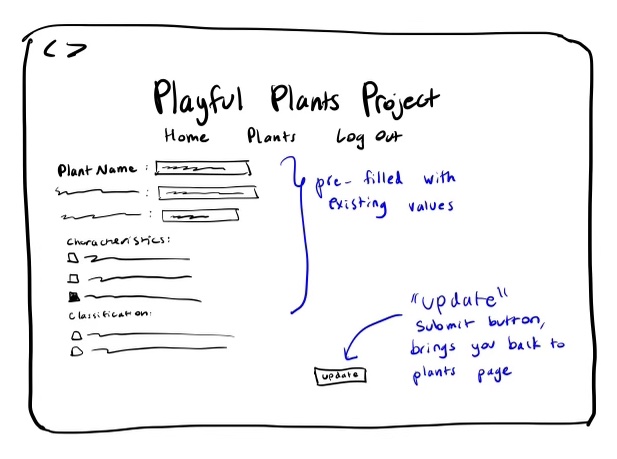 < >
Playful Plants Project
Home Plants Log Out
Plant Name :
:
:
Characteristics:
Classification:
pre-filled with
existing values
"update"
Submit button,
brings you back to
plants page
update